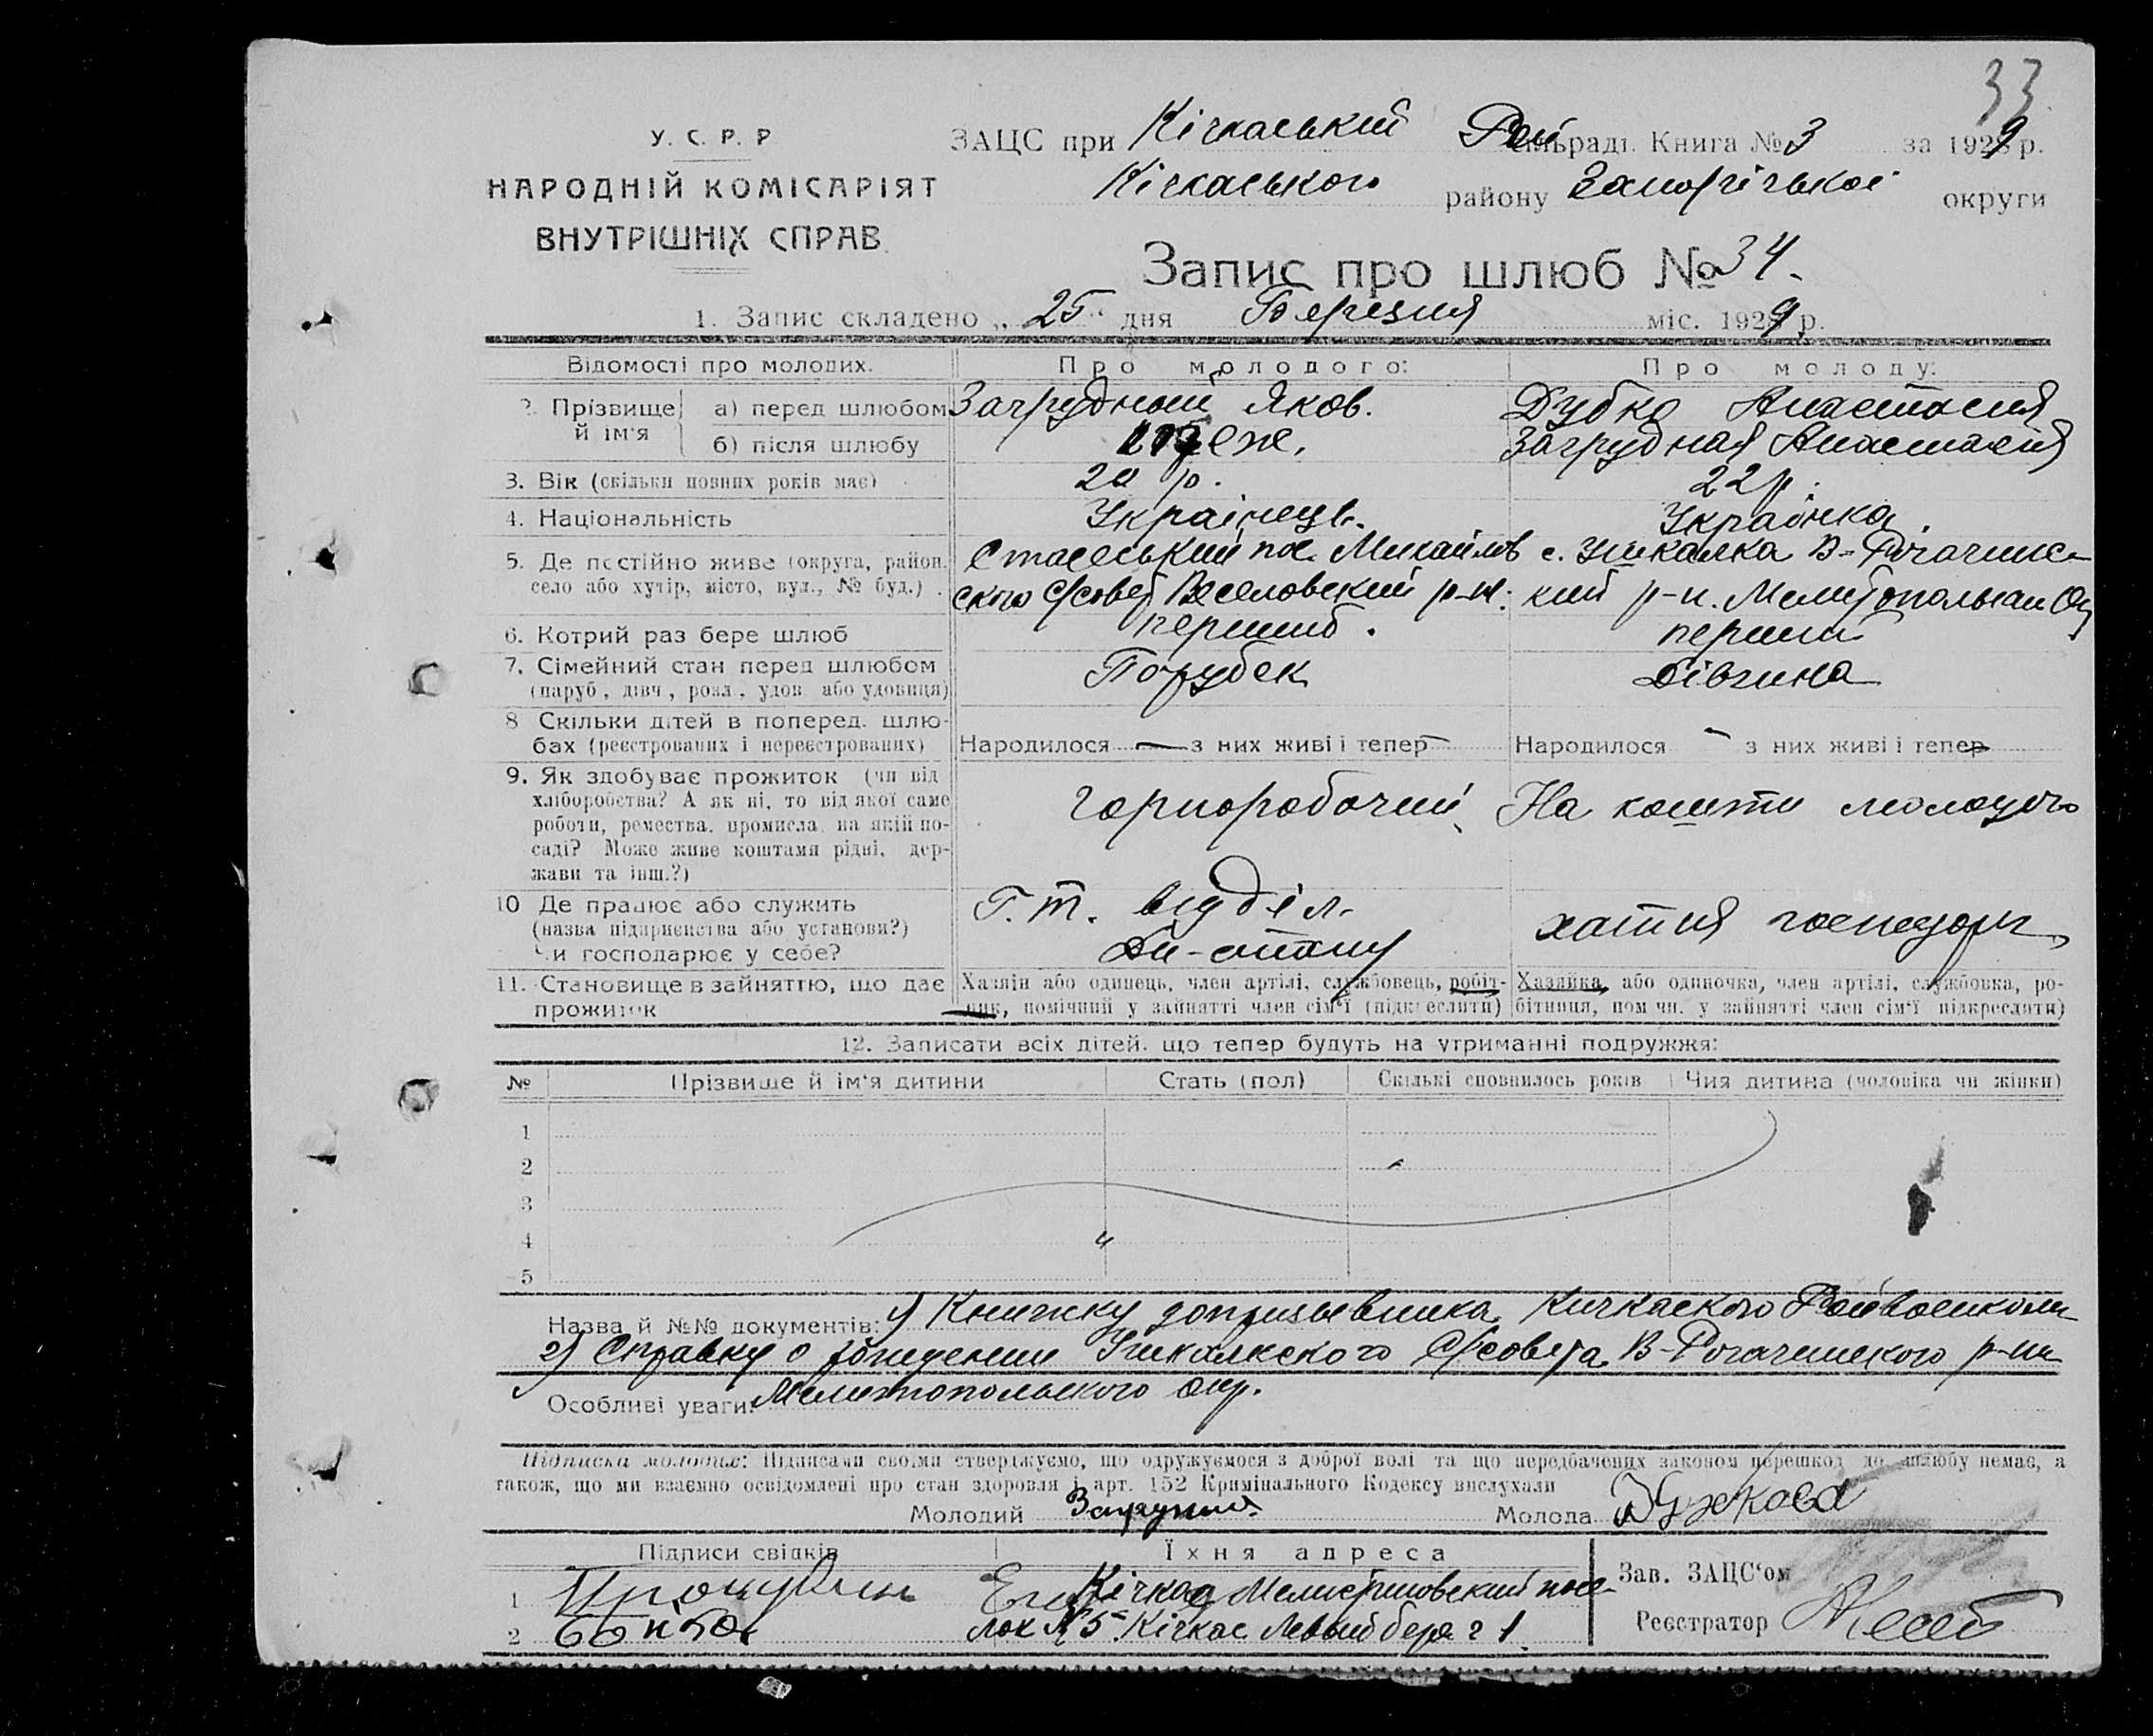 33
У. С. Р. Р
НАРОДНІЙ КОМІСАРІЯТ
ВНУТРІШНІХ СПРАВ
ЗАЦС при Кічкаський Рай сільраді. Книга № 3 за 1929 р.
Кічкаського району Запорізької округи
Запис про шлюб № 34.
1. Запис складено „ 25 “ дня Березня міс. 1929 р.
Відомості про молодих.
Про молодого:
Про молоду:
2. Прізвище й ім'я
а) перед шлюбом
Загрудный Яков.
Дубко Анастасия
б) після шлюбу
тоже.
Загрудная Анастасия
3. Вік (скільки повних років має)
20 р.
22 р.
4. Національність
Украінець.
Украінка.
5. Де постійно живе (округа, район, село або хутір, місто, вул., № буд.).
пос. Михайловского С/совет Веселовский р-н.
с. Ушкалка В-Рогачинский р-н. Мелитопольскаи Ок
6. Котрий раз бере шлюб
перший.
перший
7. Сімейний стан перед шлюбом
(паруб., дівч., розл., удов. або удовиця)
Порубек
дівчина
8 Скільки дітей в поперед. шлюбах (реєстрованих і нереєстрованих)
Народилося — з них живі і тепер —
Народилося - з них живі і тепер -
9. Як здобуває прожиток (чи від хліборобства? А як ні, то від якої саме роботи, ремества, промисла, на якій посаді? Може живе коштами рідні, держави та інш.?)
Горнорабочий
На кошти молодого
10 Де працює або служить
(назва підприємства або установи?)
Чи господарює у себе?
Г. т. відділ.
хатня господарк
11. Становище в зайняттю, що дає прожиток
Хазяїн або одинець, член артілі, службовець, робітник, помічний у зайнятті член сім'ї (підкреслити)
Хазяйка, або одиночка, член артілі, службовка, робітниця, пом чн. у зайнятті член сім'ї підкреслити)
12. Записати всіх дітей, що тепер будуть на утриманні подружжя:
№
Прізвище й ім'я дитини
Стать (пол)
Скількі сповнилось років
Чия дитина (чоловіка чи жінки)
1
2
3
4
5
Назва й №№ документів: 1) Книжку допризывника Кичкаского Райвоенком
2) Справку о рождении Ушкалкского С/совета В-Рогачинского р-на
Особливі уваги: Мелитопольского окр.
Підписка молодих: Підписами своїми стверджуємо, що одружуємося з доброї волі та що передбачених законом перешкод до шлюбу немає, а
також, що ми взаємно освідомлені про стан здоровля і арт. 152 Кримінального Кодексу вислухали
Молодий
Молода
Підписи свідків
Їхня адреса
Зав. ЗАЦС'ом
1
Кічкас
2
лок №5. Кічкас Левый берег 1.
Реєстратор